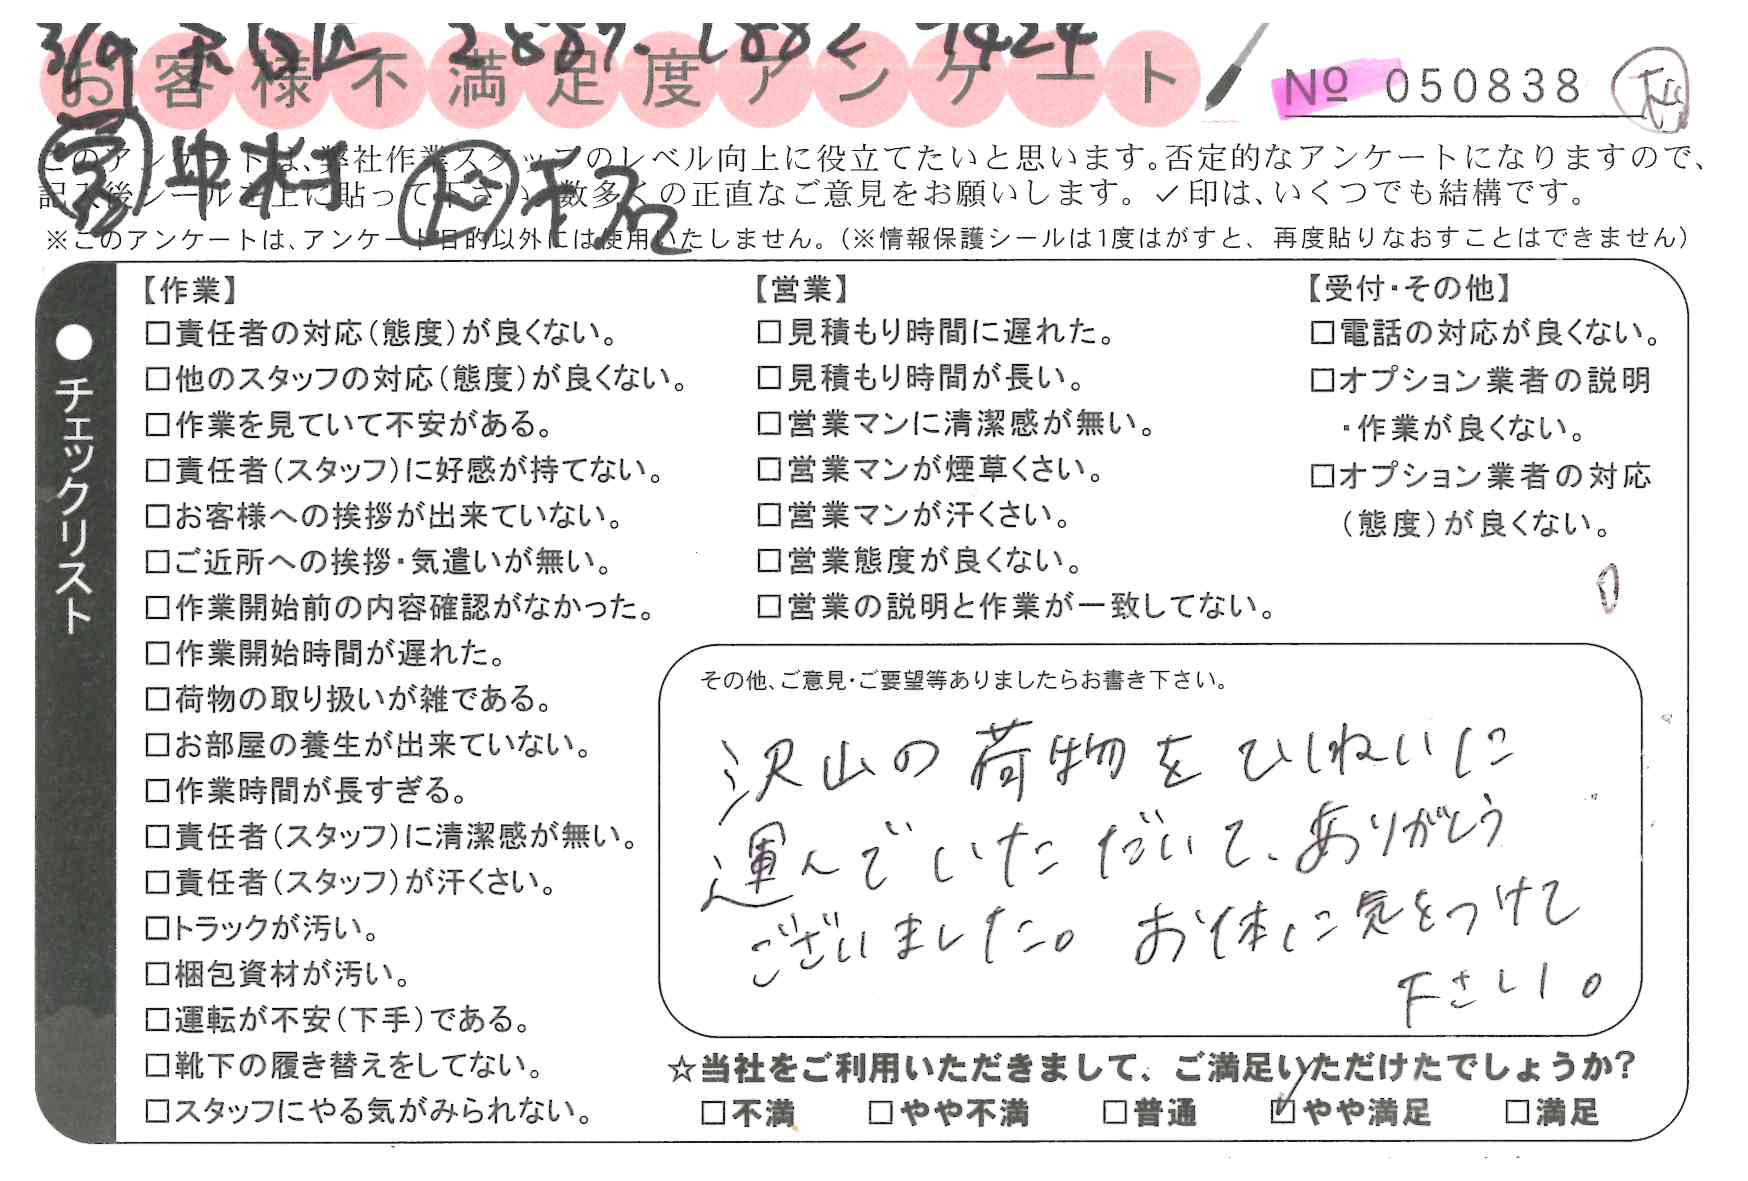 3/19
お客様不満足度アンケート
No 050838
このアンケートは、弊社作業スタッフのレベル向上に役立てたいと思います。否定的なアンケートになりますので、
記入後シールを上に貼って下さい。数多くの正直なご意見をお願いします。✓印は、いくつでも結構です。
中村
※このアンケートは、アンケート目的以外には使用いたしません。(※情報保護シールは1度はがすと、再度貼りなおすことはできません)
●チェックリスト
【作業】
□責任者の対応(態度)が良くない。
□他のスタッフの対応(態度)が良くない。
□作業を見ていて不安がある。
□責任者(スタッフ)に好感が持てない。
□お客様への挨拶が出来ていない。
□ご近所への挨拶・気遣いが無い。
□作業開始前の内容確認がなかった。
□作業開始時間が遅れた。
□荷物の取り扱いが雑である。
□お部屋の養生が出来ていない。
□作業時間が長すぎる。
□責任者(スタッフ)に清潔感が無い。
□責任者(スタッフ)が汗くさい。
□トラックが汚い。
□梱包資材が汚い。
□運転が不安(下手)である。
□靴下の履き替えをしてない。
□スタッフにやる気がみられない。
【営業】
□見積もり時間に遅れた。
□見積もり時間が長い。
□営業マンに清潔感が無い。
□営業マンが煙草くさい。
□営業マンが汗くさい。
□営業態度が良くない。
□営業の説明と作業が一致してない。
【受付・その他】
□電話の対応が良くない。
□オプション業者の説明
・作業が良くない。
□オプション業者の対応
(態度)が良くない。
その他、ご意見・ご要望等ありましたらお書き下さい。
沢山の荷物をていねいに
運んでいただいて、ありがとう
ございました。お体に気をつけて
下さい。
☆当社をご利用いただきまして、ご満足いただけたでしょうか?
□不満 □やや不満 □普通 ☑やや満足 □満足